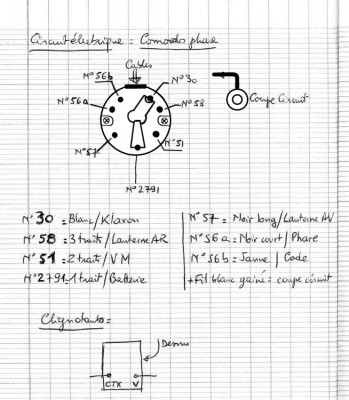 Circuit électrique = Comodo phare
Cables
N° 56b
N° 30
N° 56a
N° 58
Coupe Circuit
N° 57
N° 51
N° 2791
N° 30 = Blanc/Klaxon
N° 58 = 3 traits/Lanterne AR
N° 51 = 2 traits/VM
N° 2791 = 1 trait/Batterie
N° 57 = Noir long/Lanterne AV
N° 56a = Noir court/Phare
N° 56b = Jaune/Code
+ Fil blanc gainé = coupe circuit
Clignotants =
Dessus
CTX V